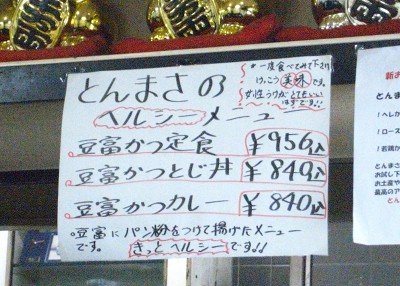 とんまさの
ヘルシーメニュー
*一度食べてみて下さり
けっこう美味です。
女性うけがとてもいい
はずです!!
豆富かつ定食 ¥956入
豆富かつとじ丼 ¥840入
豆富かつカレー ¥840込
豆富にパン粉をつけて揚げたメニュー
です。きっとヘルシーです!!
新お
とんま
「ヘレか
「ロース
「若鶏か
とんまさ
お試し下
お土産や
最高のア
とん